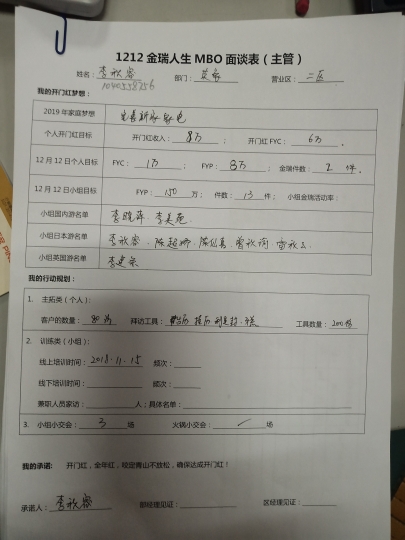 1212金瑞人生MBO面谈表（主管）
姓名：李秋容 部门： 营业区：二区
我的开门红梦想：
2019年家庭梦想
个人开门红目标 开门红收入：8万； 开门红FYC：6万.
12月12日个人目标 FYC：1万； FYP：3万； 金瑞件数：2件.
12月12日小组目标 FYP：150万； 件数：13件； 小组金瑞活动率：
小组国内游名单 李晓萍 李美苑
小组日本游名单 李秋容.
小组英国游名单
我的行动规划：
1. 主拓类（个人）：
客户的数量：80 拜访工具： 工具数量：200
2. 训练类（小组）：
线上培训时间：2018.11.15 频次：
线下培训时间： 频次：
兼职人员家访：人；具体名单：
3. 小组小交会：3场 火锅小交会：/场
我的承诺： 开门红，全年红，咬定青山不放松，确保达成开门红！
承诺人：李秋容 部经理见证： 区经理见证：